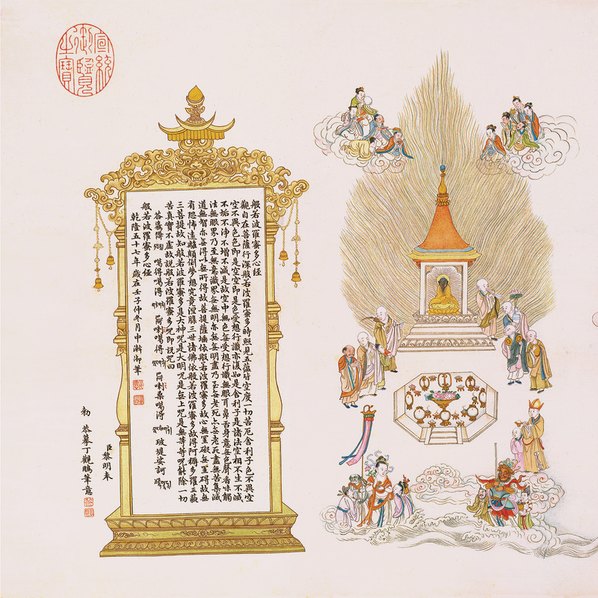 般若波羅蜜多心經
觀自在菩薩行深般若波羅蜜多時照見五蘊皆空度一切苦厄舍利子色不異空
空不異色色即是空空即是色受想行識亦復如是舍利子是諸法空相不生不滅
不垢不淨不增不減是故空中無色無受想行識無眼耳鼻舌身意無色聲香味觸
法無眼界乃至無意識界無無明亦無無明盡乃至無老死亦無老死盡無苦集滅
道無智亦無得以無所得故菩提薩埵依般若波羅蜜多故心無罣礙無罣礙故無
有恐怖遠離顛倒夢想究竟涅槃三世諸佛依般若波羅蜜多故得阿耨多羅三藐
三菩提故知般若波羅蜜多是大神咒是大明咒是無上咒是無等等咒能除一切
苦真實不虛故說般若波羅蜜多咒即說咒曰
噶得噶得 喇噶得 喇桑噶得 玻堤娑訶
般若波羅蜜多心經
乾隆五十七年歲在壬子仲冬月中澣御筆
臣黎明奉
勅恭摹丁觀鵬筆意
宣統御覽之寶